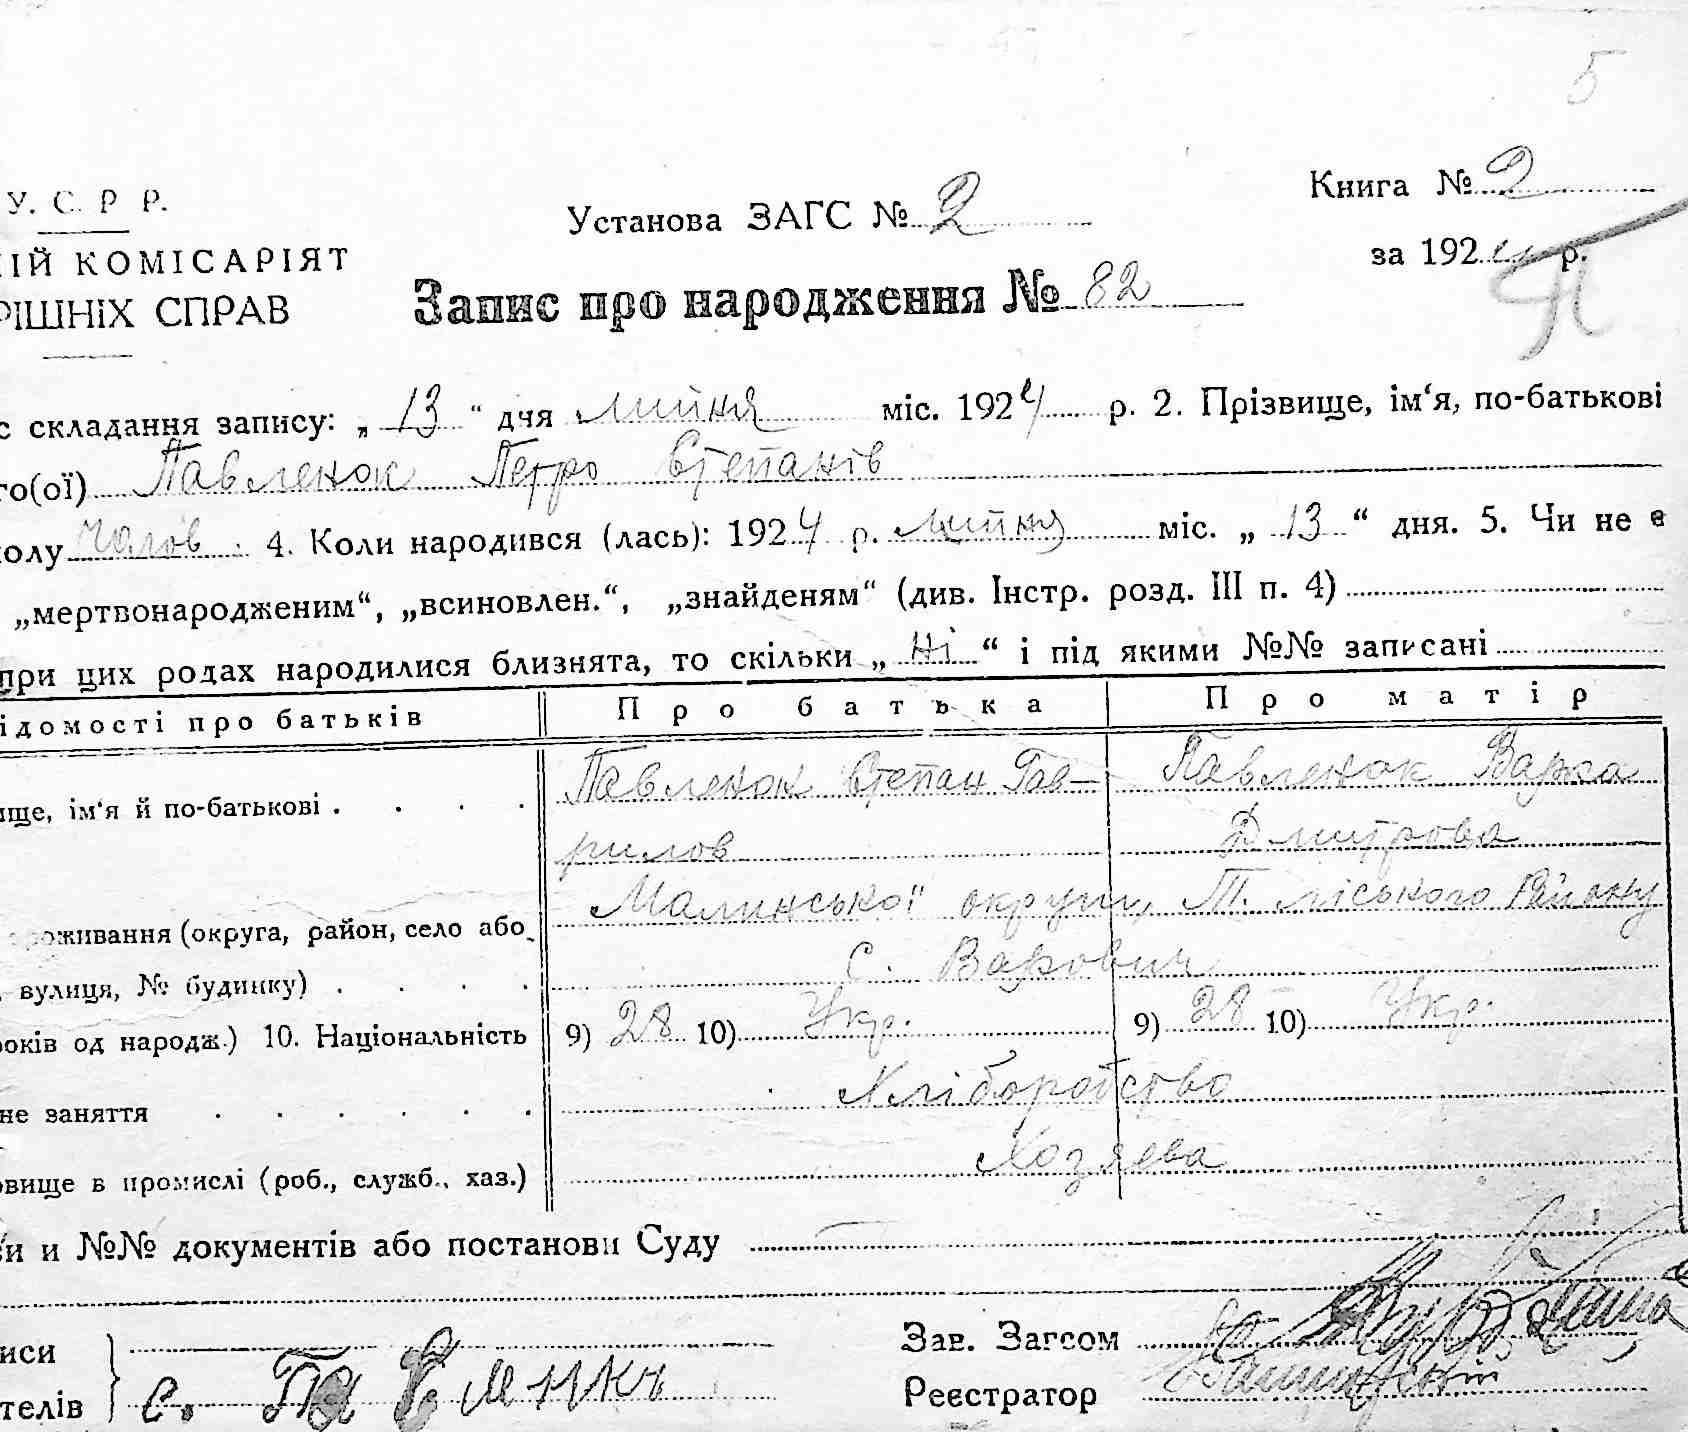 5
У. С. Р Р.
Установа ЗАГС № 2
Книга № 2
ІЙ КОМІСАРІЯТ
за 192 р.
П
РІШНІХ СПРАВ
Запис про народження № 82
с складання запису: „ 13 “ дня липня міс. 1924 р. 2. Прізвище, ім‘я, по-батькові
го(ої) Павленок Петро Степанів
олу Чолов. 4. Коли народився (лась): 1924 р. липня міс. „ 13 “ дня. 5. Чи не є
„мертвонародженим“, „всиновлен.“, „знайденям“ (див. Інстр. розд. III п. 4)
при цих родах народилися близнята, то скільки „ Ні “ і під якими №№ записані
ідомості про батьків Про батька Про матір
ище, ім‘я й по-батькові . . . . Павленок Степан Гав- Павленок Варка
рилов Дмитрова
роживання (округа, район, село або Малинської округи, району
, вулиця, № будинку) . . . . с. Варович
років од народж.) 10. Національність 9) 28 10) Укр. 9) 28 10) Укр.
не заняття . . . . . . Хліборобство
овище в промислі (роб., служб., хаз.) Хозяева
и и №№ документів або постанови Суду
иси
Зав. Загсом
телів с.
Реєстратор